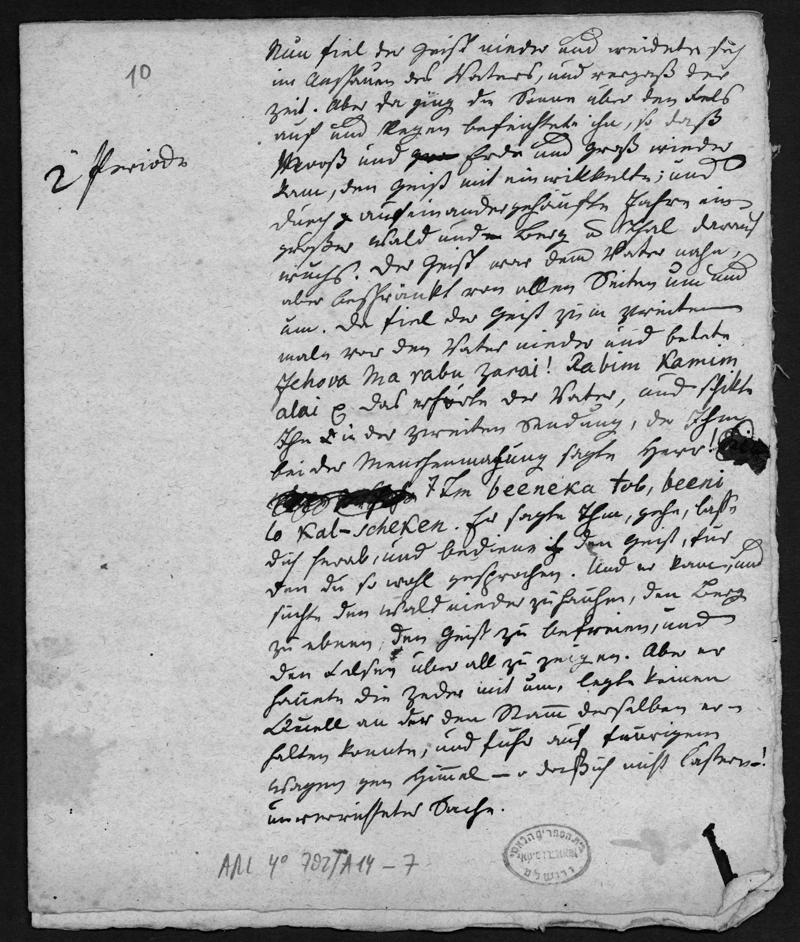 10
2te Periode
Nun fiel der Geist nieder und weidete sich
im Anschauen des Vaters, und vergaß der
Zeit. Aber da ging die Sonne über den Fels
auf und Regen befeuchtete ihn, so daß
Mooß und Erde und Graß wieder
kam, den Geist mit einwikkelte; und
durch aufeinandergehäufte Jahre ein
großer Wald und Berg u Thal darauf
wuchs. Der Geist war dem Vater nahe,
aber beschränkt von allen Seiten um und
um. Da fiel der Geist zum zweiten
male vor den Vater nieder und betete
Jehova Ma rabu zarai! Rabim Kamim
alai das erhörte der Vater, und schikte
Ihn in der zweiten Sendung, der Ihm
bei der Menschenmachung sagte Herr!
Im beeneka tob, beeni
lo Kal-scheken. Er sagte Ihm, gehe, lass
dich herab, und bediene den Geist, für
den du so wohl gesprochen. Und er kam, und
suchte den Wald nieder zu hauen, den Berg
zu ebnen, den Geist zu befreien, und
den Felsen überall zu zeigen. Aber er
hauete die Zeder mit um, legte keinen
Quell an der den Stam̄ derselben er-
halten konnte, und fuhr auf feurigem
Wagen gen Him̄el — daß ich nicht lästere!
unverrichteter Sache.
ARC 4° 792/A14-7
בית הספרים הלאומי
ירושלם